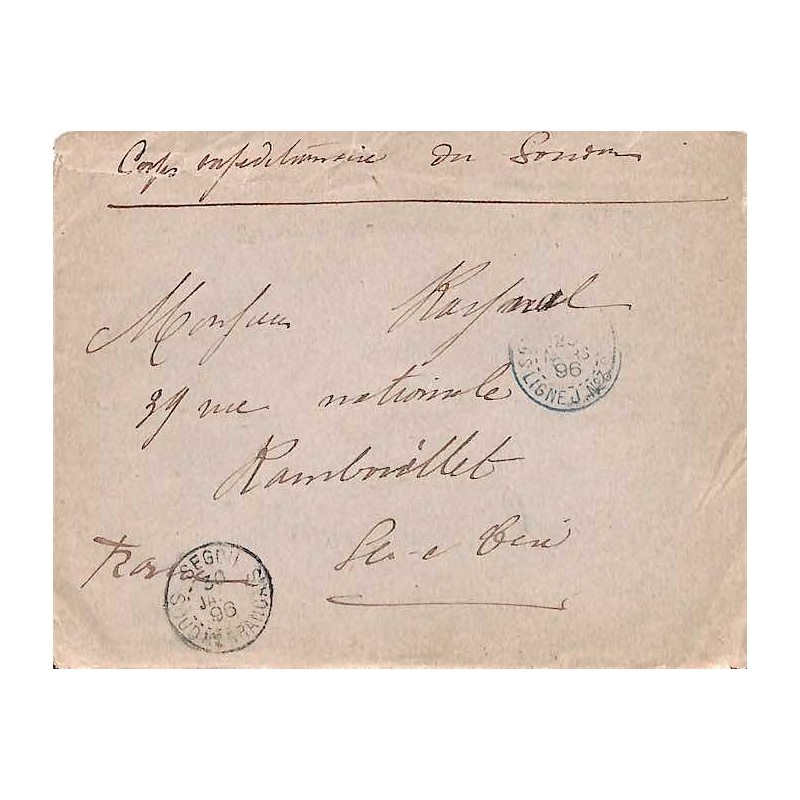 Corps expeditionnaire du Soudan
Monsieur Raynal
29 rue nationale
Rambouillet
Seine et Oise
France
LIGNE J N°
96
SEGOU SIKORO
30
JANV
96
SOUDAN FRANCAIS